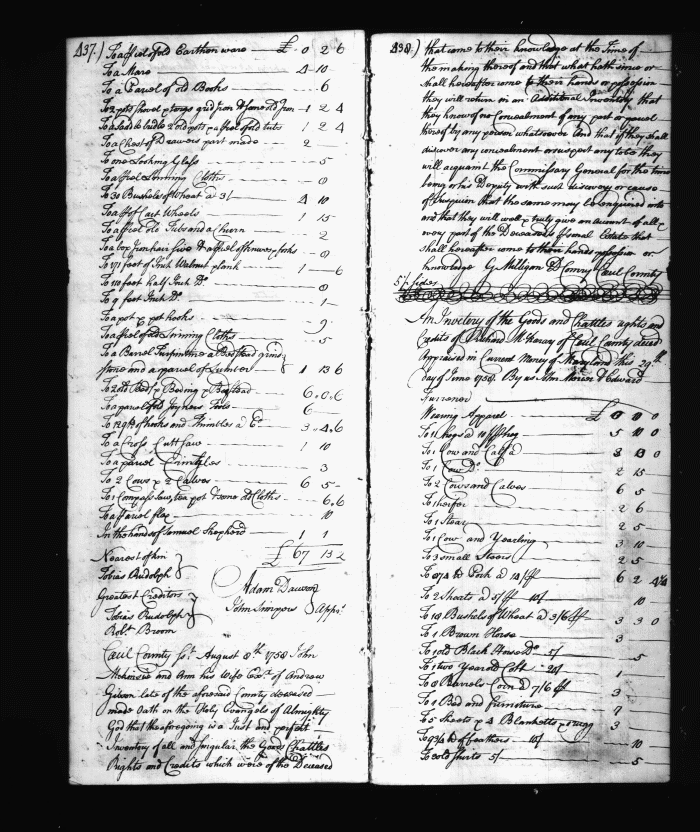 437.) To a ffiel of old Earthen ware — £ 0 2 6
To a Mare — 4 10
To a Parcel of old Books — 6
To 2 pots shovel & tongs grid Iron & some old Iron — 1 2 4
To a Saddle bridle 2 old pots 1 2 4
To a Chest of Drawers part made — 2
To one Looking Glass — 5
To a ffiel Linning Cloths — 8
To 30 Bushels of Wheat a 3/ 4 10
To a ff of Cart Wheels 1 15
To a ffiel old Tubs and a Churn 2
To a box Iron hair Sive & a ffiel of knives & forks — 8
To 171 feet of Inch Walnut plank — 1 — 6
To 110 feet half Inch Do. 8
To 9 feet Inch Do. 1
To a pot & pot hooks 9
To a ffiel of old Linning Cloths — 5
To a Barrel Turpentine a Bedstead grind
stone and a parcel of Lumber 1 13 6
To 2 old Beds & Beding & Bedstead 6.0.6
To a parcel old Joyners Tools 6
To 129 lb of hooks and Thimbles a 6d — 3.4.6
To a Cross Cutt saw 1 10
To a parcel 3
To 2 Cows & 2 Calves 6 5
To 1 Compass saw, tea pot & some old Cloths — 6.6
To a parcel flax — 10
In the hands of Samuel Shepherd — 1 1
£ 67 13 2
Nearest of kin
Tobias Rudolph
Greatest Creditors
Tobias Rudolph
Robt. Broom
Adam Dawson
John Simpers
Apprs.
Cecil County Sct. August 8th 1758 John
and Ann his Wife Exx. of Andrew
Gibson late of the aforesaid County deceased
made Oath on the Holy Evangels of Almighty
God that the foregoing is a Just and perfect
Inventory of all and singular the Goods Chattles
Rights and Credits which were of the Deceased
438.) that came to their knowledge at the Time of
the making thereof and that what hath since or
shall hereafter come to their hands or possession
they will return in an Additional Inventory that
they know of no Concealment of any part or parcel
thereof by any person whatsoever And that if they shall
discover any concealment or suspect any to be they
will acquaint the Commissary General for the time
being or his Deputy with such discovery or cause
of suspicion that the same may be enquired into
and that they will well & truly give an account of all &
every part of the Deceaseds Personal Estate that
shall hereafter come to their hands possession or
knowledge By Milligan D Comry Cecil County
5½ sides
An Invetery of the Goods and Chattles rights and
Credits of Richard McKeray of Cecil County deced
Appraised in Current Money of Maryland this 29th
day of June 1758. By us John & Edward
Furroner
Waring Apparel — £ 0 0 0
To 11 hogs a 10/ 5 10 0
To 1 Cow and Calf a 3 13 0
To 1 Cow Do. 2 15
To 2 Cows and Calves 6 5
To 1 heifer 2 6
To 1 Stear 2 5
To 1 Cow and Yearling 3 10
To 3 small Steers 2 5
6 2 4½
To 2 Sheats a 5/ 10/ 10
To 18 Bushels of Wheat a 3/6 3 3 0
To 1 Brown Horse 3
To 1 old Black Horse Do. 5/ 5
To 1 two Year old Colt — 20/ 1
To 8 Barrels Corn a 7/6 3
To 1 Bed and furneture 9
To 5 Sheets & 4 Blanketts & rugg 3
of feathers — 10/ 10
To 3 old shirts 5/ 5